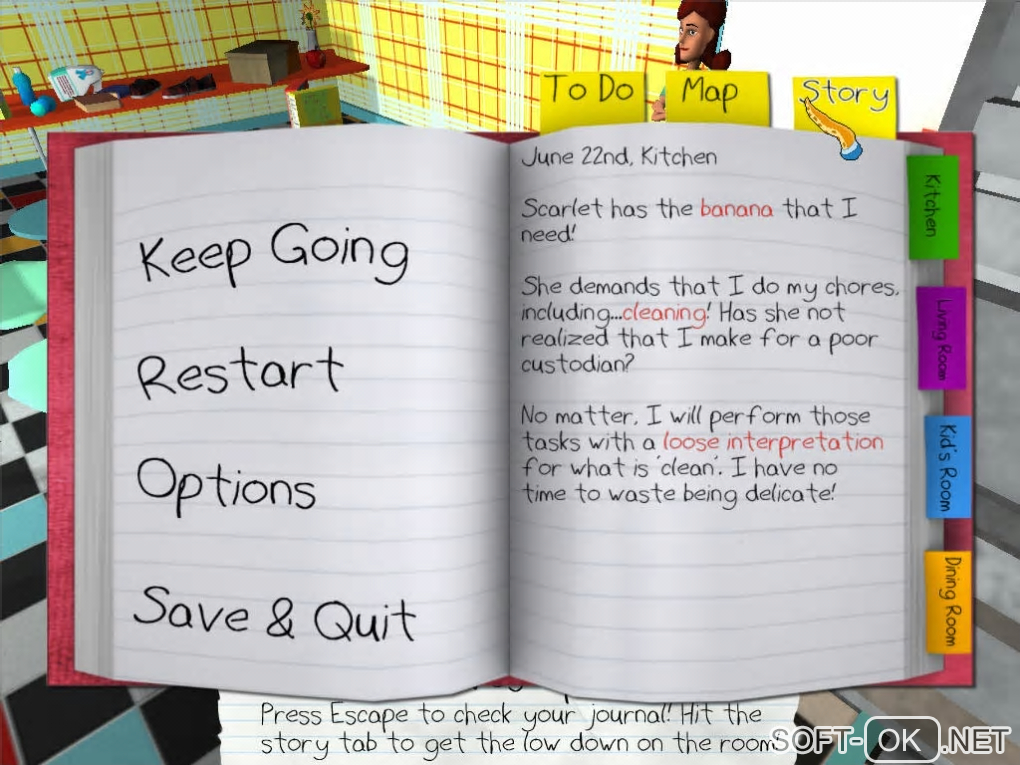 To Do
Map
Story
Keep Going
Restart
Options
Save & Quit
June 22nd, Kitchen
Scarlet has the banana that I
need!
She demands that I do my chores,
including...cleaning! Has she not
realized that I make for a poor
custodian?
No matter. I will perform those
tasks with a loose interpretation
for what is 'clean'. I have no
time to waste being delicate!
Kitchen
Living Room
Kid's Room
Dining Room
Press Escape to check your journal! Hit the
story tab to get the low down on the room
SOFT-OK.NET